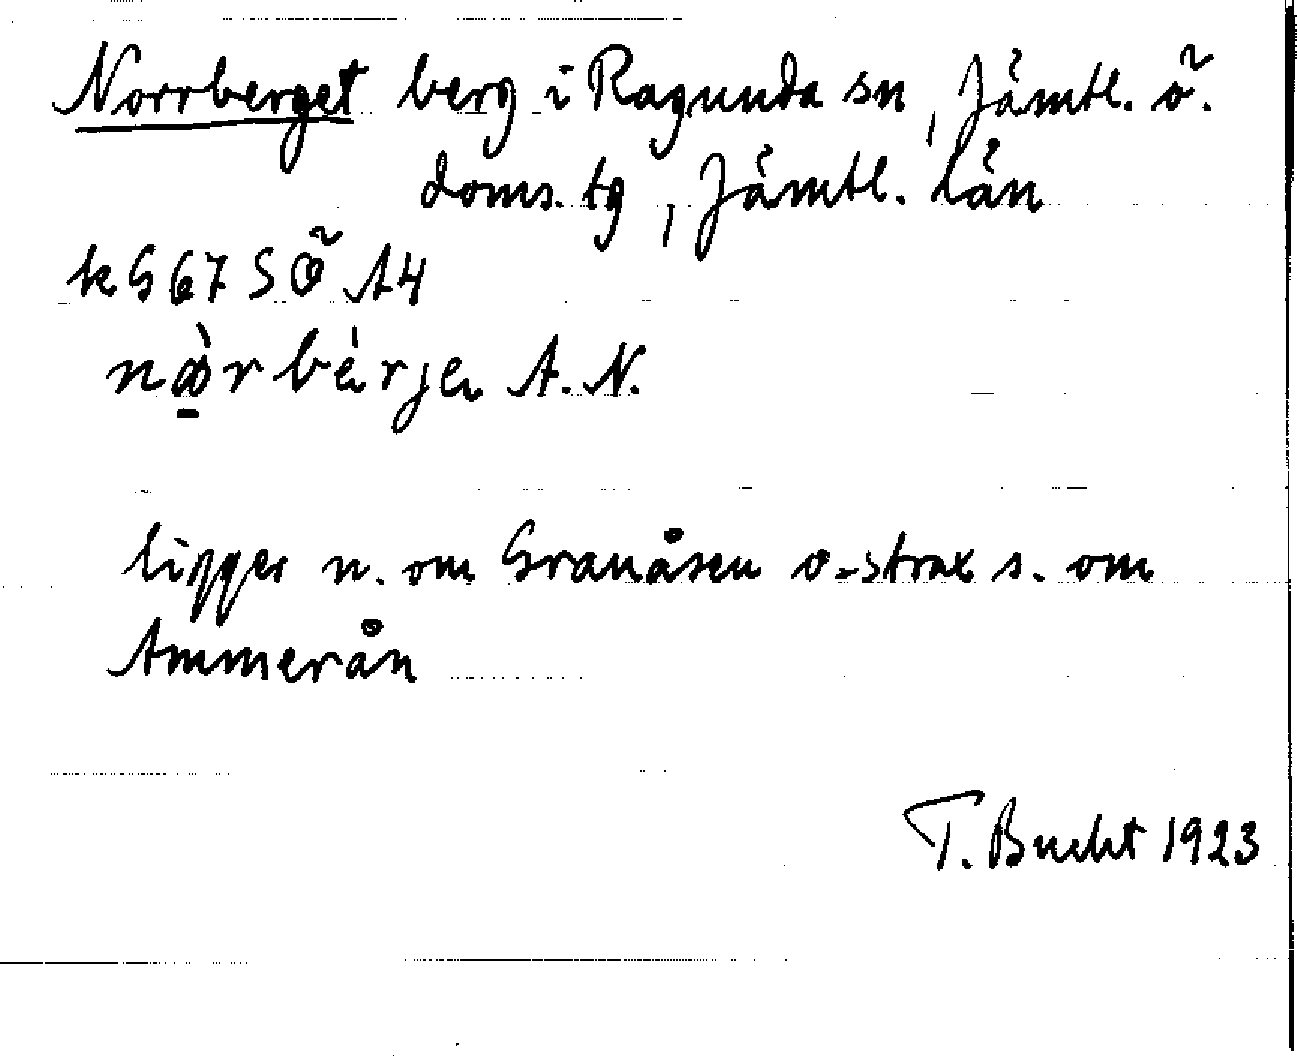 Norrberget berg i Ragunda sn, Jämtl. ö.
doms. tg, Jämtl. län
k G 67 S Ö A4
nò̱rbèrje A. N.
ligger n. om Granåsen o. strax s. om
Ammerån
T. Bucht 1923